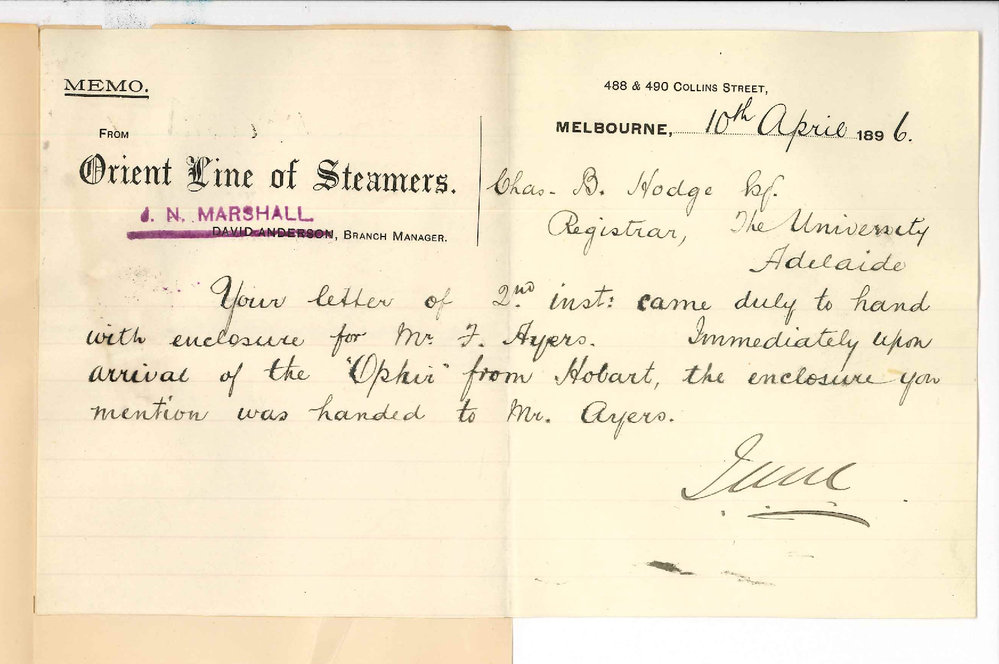 MEMO.
488 & 490 COLLINS STREET,
MELBOURNE, 10th April 1896.
FROM
Orient Line of Steamers.
J. N. MARSHALL
DAVID ANDERSON, BRANCH MANAGER.
Chas. B. Hodge
Registrar, The University
Adelaide
Your letter of 2nd inst: came duly to hand
with enclosure for Mr. F. Ayers. Immediately upon
arrival of the "Ophir" from Hobart, the enclosure you
mention was handed to Mr. Ayers.